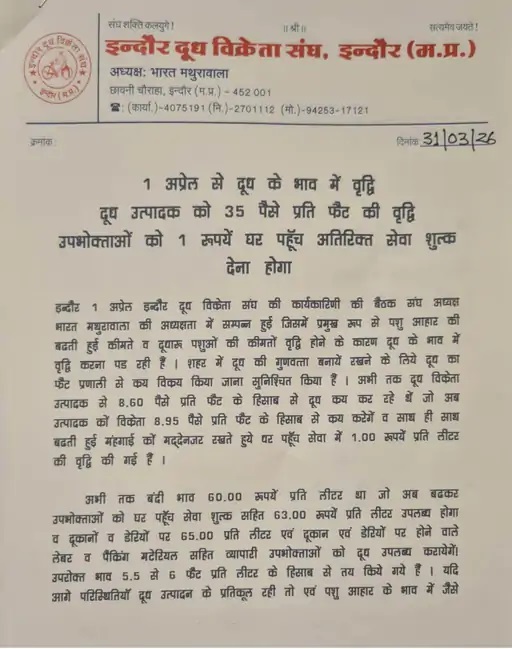 संघ शक्ति कलयुगे !
॥ श्री ॥
सत्यमेव जयते !
इन्दौर दूध विक्रेता संघ
इन्दौर (म.प्र.)
इन्दौर दूध विक्रेता संघ, इन्दौर (म.प्र.)
अध्यक्ष: भारत मथुरावाला
छावनी चौराहा, इन्दौर (म.प्र.) - 452 001
☎: (कार्या.)-4075191 (नि.)-2701112 (मो.)-94253-17121
क्रमांक
दिनांक 31/03/26
1 अप्रेल से दूध के भाव में वृद्धि
दूध उत्पादक को 35 पैसे प्रति फैट की वृद्धि
उपभोक्ताओं को 1 रूपयें घर पहूॅच अतिरिक्त सेवा शुल्क
देना होगा
इन्दौर 1 अप्रेल इन्दौर दूध विकेता संघ की कार्यकारिणी की बैठक संघ अध्यक्ष
भारत मथुरावाला की अध्यक्षता में सम्पन्न हुई जिसमें प्रमुख रूप से पशु आहार की
बढती हुई कीमते व दूधारू पशुओं की कीमतों वृद्धि होने के कारण दूध के भाव में
वृद्धि करना पड रही हैं । शहर में दूध की गुणवत्ता बनायें रखने के लिये दूध का
फैट प्रणाली से कय विकय किया जाना सुनिश्चित किया हैं । अभी तक दूध विकेता
उत्पादक से 8.60 पैसे प्रति फैट के हिसाब से दूध कय कर रहे थें जो अब
उत्पादक कों विकेता 8.95 पैसे प्रति फैट के हिसाब से कय करेगें व साथ ही साथ
बढती हुई मंहगाई कों मद्देनजर रखते हुये घर पहूॅच सेवा में 1.00 रूपयें प्रति लीटर
की वृद्धि की गई हैं ।
अभी तक बंदी भाव 60.00 रूपयें प्रति लीटर था जो अब बढकर
उपभोक्ताओं को घर पहूॅच सेवा शुल्क सहित 63.00 रूपयें प्रति लीटर उपलब्ध होगा
व दूकानों व डेरियों पर 65.00 प्रति लीटर एवं दूकान एवं डेरियों पर होने वाले
लेबर व पैकिंग मटेरियल सहित व्यापारी उपभोक्ताओं को दूध उपलब्ध करायेगें।
उपरोक्त भाव 5.5 से 6 फैट प्रति लीटर के हिसाब से तय किये गये हैं । यदि
आगे परिस्थितियाॅ दूध उत्पादन के प्रतिकूल रही तो एवं पशु आहार के भाव में जैसे